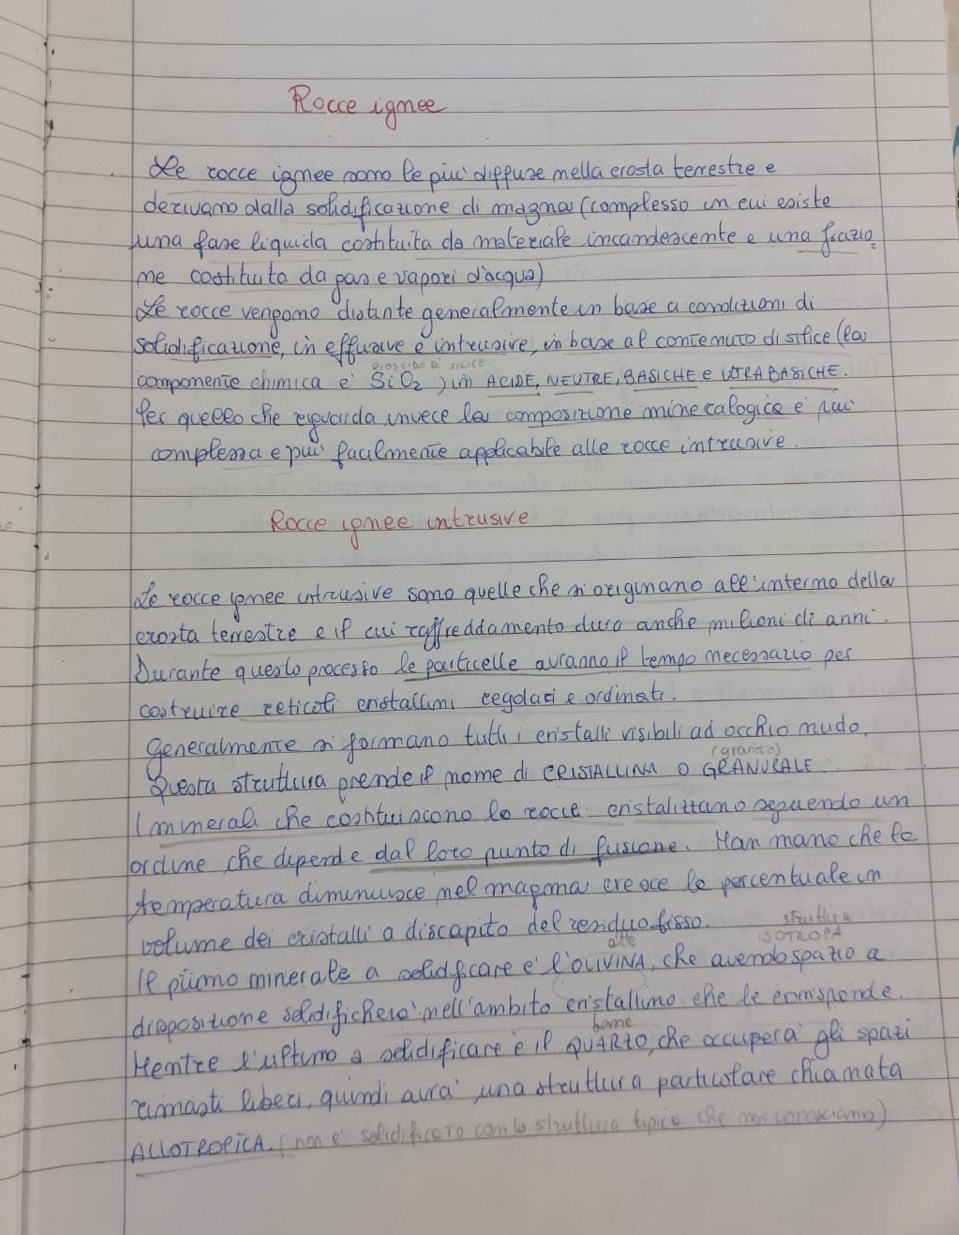 Rocce ignee
Le rocce ignee sono le piu' diffuse nella crosta terrestre e
derivano dalla solidificazione di magma (complesso in cui esiste
una fase liquida costituita da materiale incandescente e una frazio
ne costituita da gas e vapori d'acqua)
Le rocce vengono distinte generalmente in base a condizioni di
solidificazione, in effusive e intrusive, in base al contenuto di silice (la
BIOSSIDO DI SILICE
componente chimica e' SiO2) in ACIDE, NEUTRE, BASICHE e UTRABASICHE.
Per quello che riguarda invece la composizione mineralogica e' piu'
complessa e piu' facilmente applicabile alle rocce intrusive.
Rocce ignee intrusive
Le rocce ignee intrusive sono quelle che si originano all'interno della
crosta terrestre e il cui raffreddamento dura anche milioni di anni.
Durante questo processo le particelle avranno il tempo necessario per
costruire reticoli cristallini regolari e ordinati.
Generalmente si formano tutti i cristalli visibili ad occhio nudo.
(granito)
Questa struttura prende il nome di CRISTALLINA O GRANURALE.
I minerali che costituiscono le rocce cristalizzano seguendo un
ordine che dipende dal loro punto di fusione. Man mano che la
temperatura diminuisce nel magma cresce la percentuale in
volume dei cristalli a discapito del residuo fisso.
struttura
ISOTROPA
alte
Il primo minerale a solidificare e' l'OLIVINA, che avendo spazio a
disposizione solidifichera' nell'ambito cristallino che le corrisponde.
basse
Mentre l'ultimo a solidificare è il QUARZO, che occupera' gli spazi
rimasti liberi, quindi avra' una struttura particolare chiamata
ALLOTROPICA. (non e' solidificato con la struttura tipica che noi conosciamo)